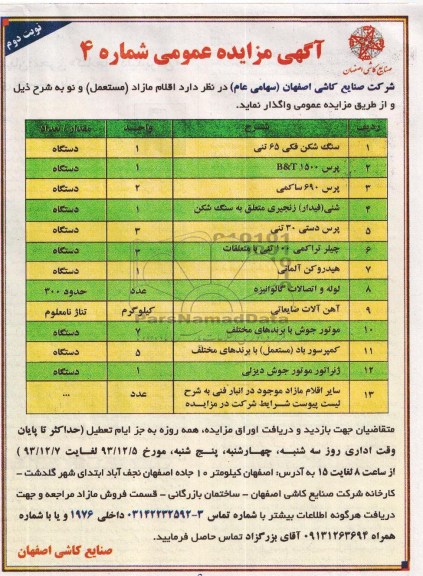 نوبت دوم
آگهی مزایده عمومی شماره ۴
صنایع کاشی اصفهان
شرکت صنایع کاشی اصفهان (سهامی عام) در نظر دارد اقلام مازاد (مستعمل) و نو به شرح ذیل
و از طریق مزایده عمومی واگذار نماید.
ردیف شرح واحد مقدار / تعداد
۱ سنگ شکن فکی ۶۵ تنی ۱ دستگاه
۲ پرس B&T ۱۵۰۰ ۱ دستگاه
۳ پرس ۶۹۰ ساکمی ۲ دستگاه
۴ شنی (فیدار) زنجیری متعلق به سنگ شکن ۱ دستگاه
۵ پرس دستی ۳۰ تنی ۳ دستگاه
۶ چیلر تراکمی ۱۰۰ تنی با متعلقات ۳ دستگاه
۷ هیدروکن آلمانی ۱ دستگاه
۸ لوله و اتصالات گالوانیزه عدد حدود ۳۰۰
۹ آهن آلات ضایعاتی کیلوگرم تناژ نامعلوم
ParsNamadData
۱۰ موتور جوش با برندهای مختلف ۷ دستگاه
۱۱ کمپرسور باد (مستعمل) با برندهای مختلف ۵ دستگاه
۱۲ ژنراتور موتور جوش دیزلی ۱ دستگاه
۱۳ سایر اقلام مازاد موجود در انبار فنی به شرح عدد ...
لیست پیوست شرایط شرکت در مزایده
متقاضیان جهت بازدید و دریافت اوراق مزایده، همه روزه به جز ایام تعطیل (حداکثر تا پایان
وقت اداری روز سه شنبه، چهارشنبه، پنج شنبه، مورخ ۹۳/۱۲/۵ لغایت ۹۳/۱۲/۷ )
از ساعت ۸ لغایت ۱۵ به آدرس: اصفهان کیلومتر ۱۰ جاده اصفهان نجف آباد ابتدای شهر گلدشت -
کارخانه شرکت صنایع کاشی اصفهان - ساختمان بازرگانی - قسمت فروش مازاد مراجعه و جهت
دریافت هرگونه اطلاعات بیشتر با شماره تماس ۳-۰۳۱۴۲۲۳۲۵۹۲ داخلی ۱۹۷۶ و یا با شماره
همراه ۰۹۱۳۱۲۶۳۶۹۴ آقای بزرگزاد تماس حاصل فرمایید.
صنایع کاشی اصفهان